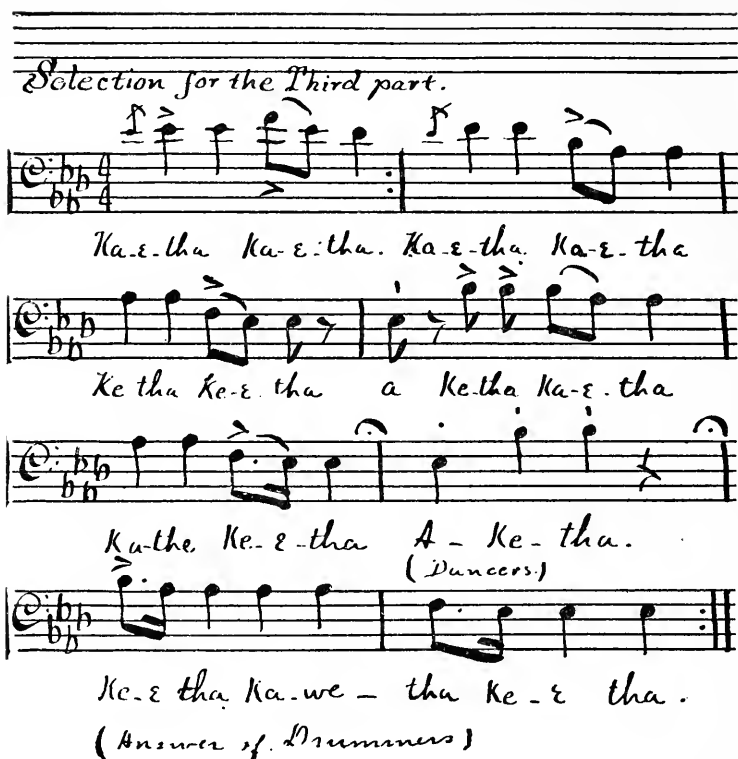 Selection for the Third part.
Ka-ε-tha Ka-ε-tha. Ka-ε-tha. Ka-ε-tha
Ke tha Ke-ε-tha a Ke-tha Ka-ε-tha
Ka-the Ke-ε-tha A-Ke-tha.
(Dancers)
Ke-ε tha Ka-we-tha Ke-ε tha.
(Answer of Drummers)